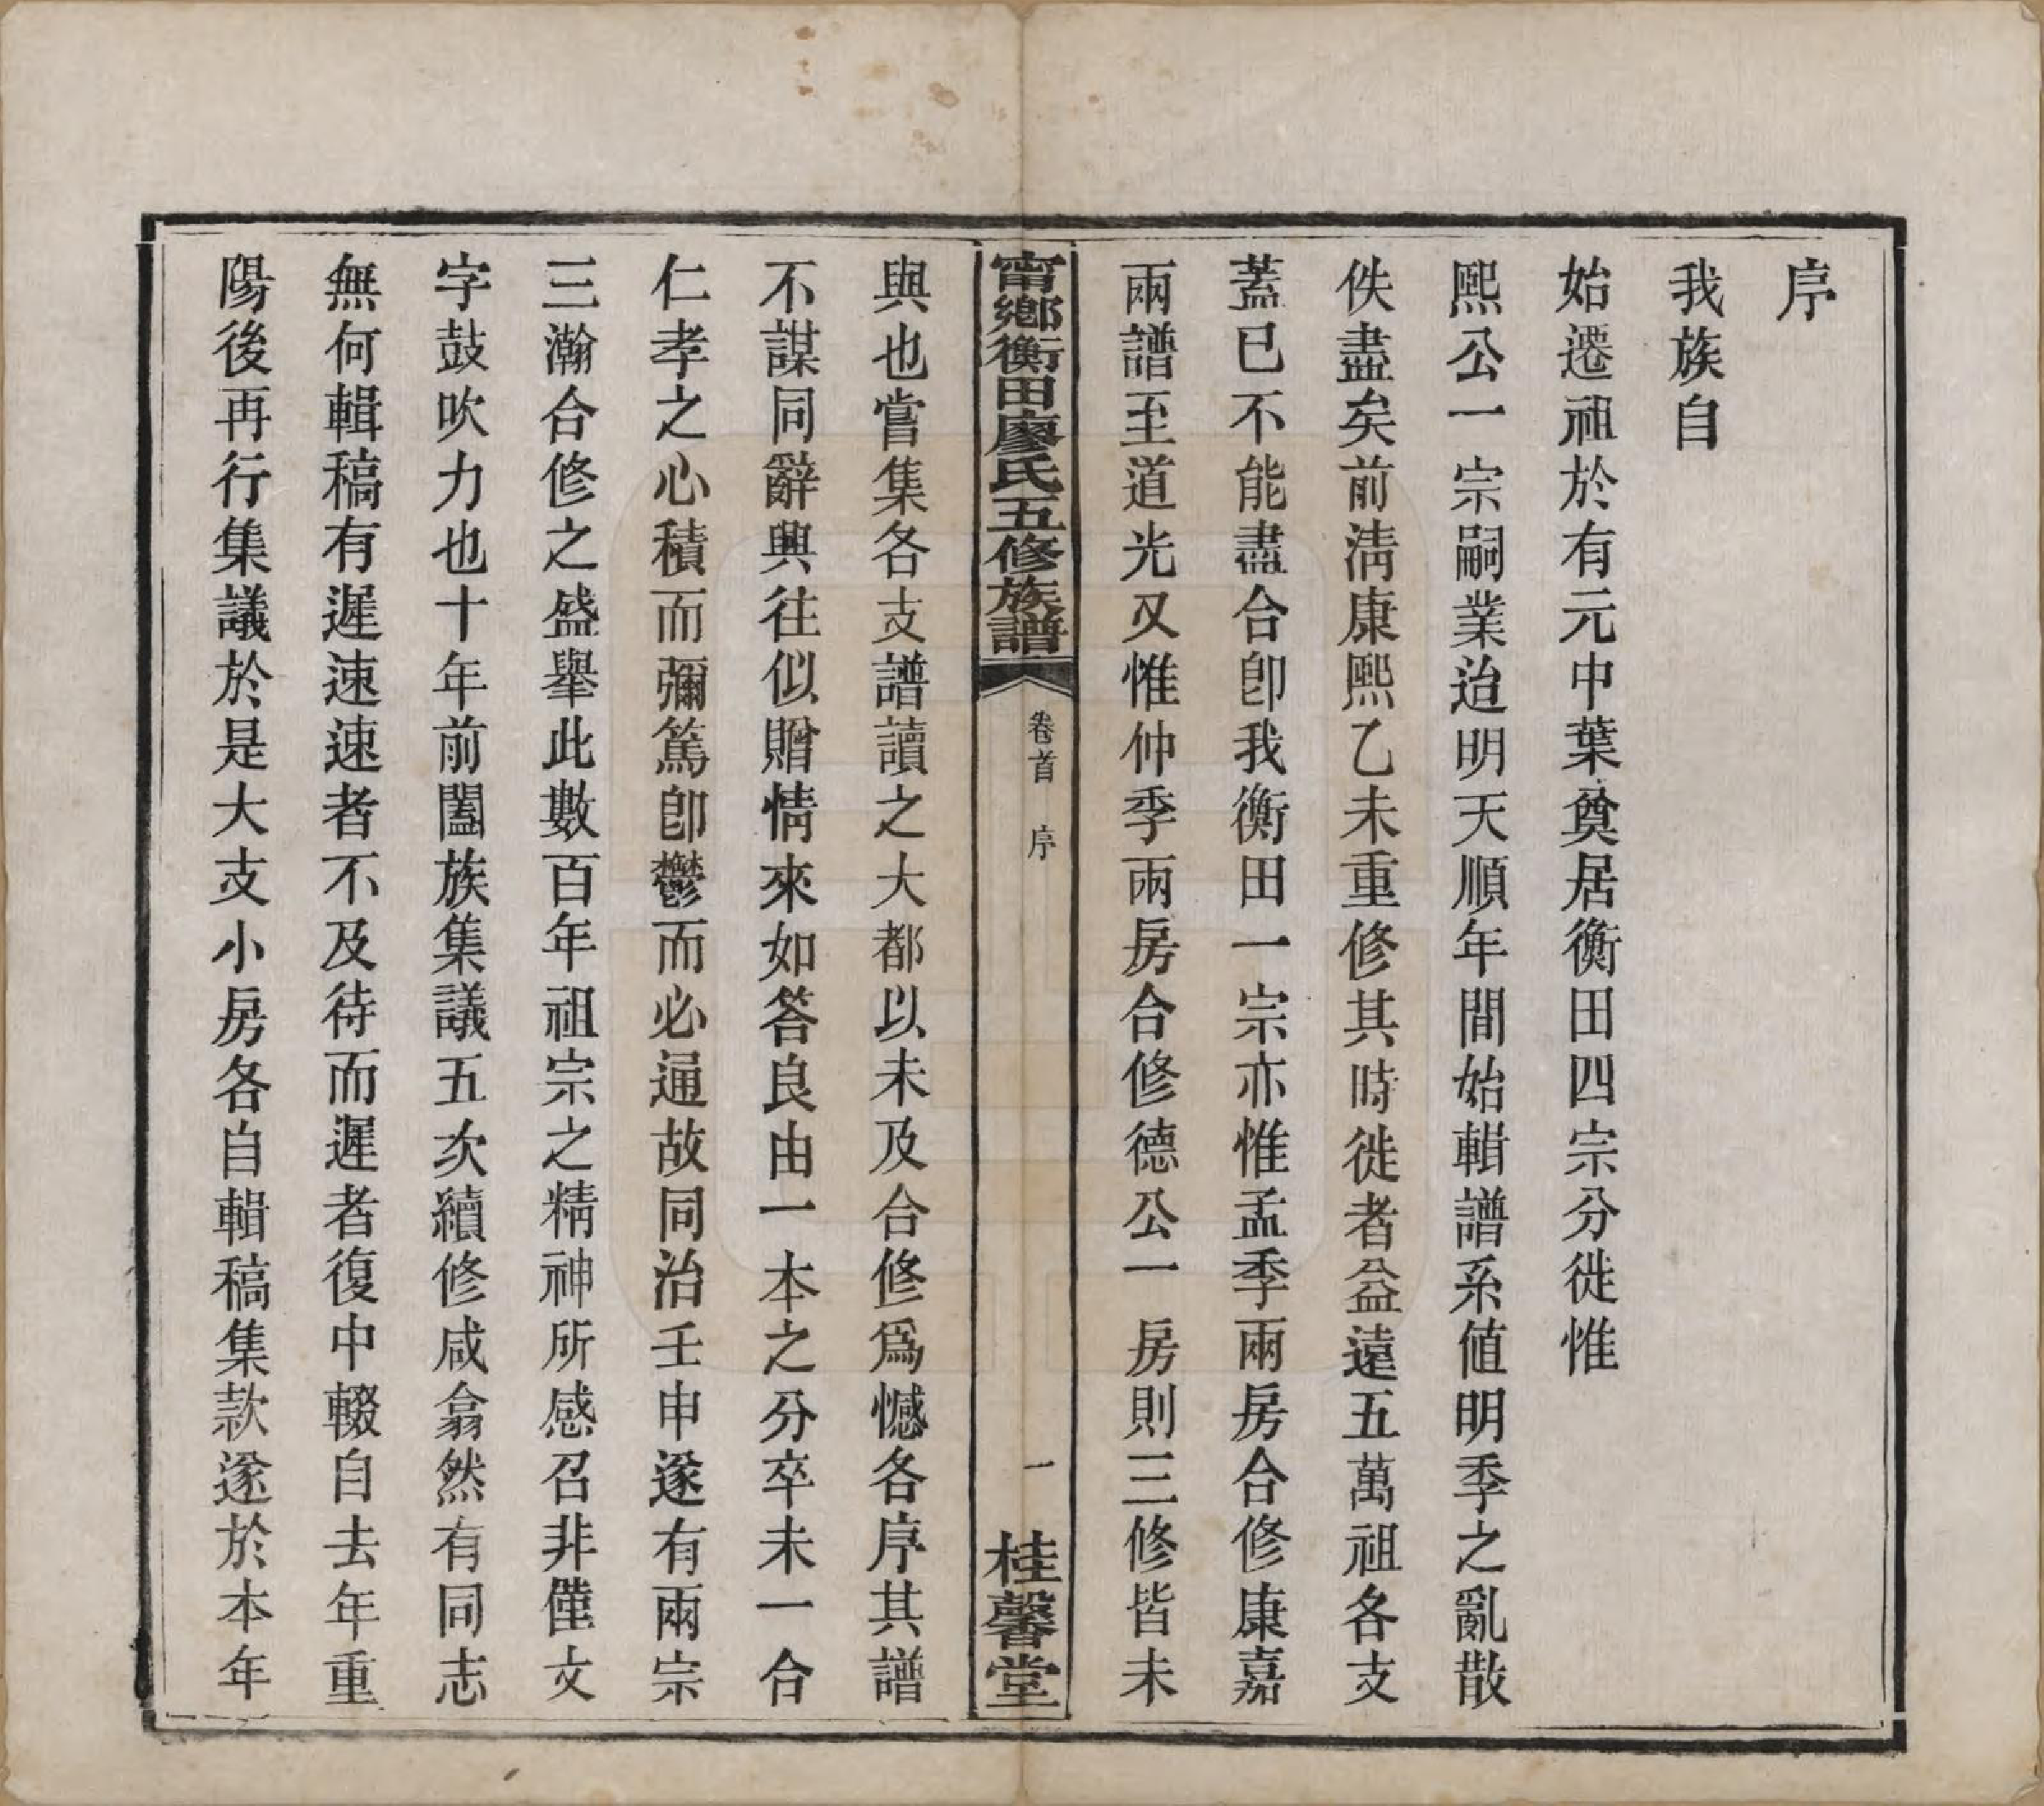 序
我族自
始遷祖於有元中葉奠居衡田四宗分徙惟
熙公一宗嗣業迨明天順年間始輯譜系值明季之亂散
佚盡矣前淸康熙乙未重修其時徙者益遠五萬祖各支
蓋已不能盡合卽我衡田一宗亦惟孟季兩房合修康嘉
兩譜至道光又惟仲季兩房合修德公一房則三修皆未
甯鄉衡田廖氏五修族譜
卷首 序
一
桂馨堂
與也嘗集各支譜讀之大都以未及合修爲憾各序其譜
不謀同辭興往似贈情來如答良由一本之分卒未一合
仁孝之心積而彌篤卽鬱而必通故同治壬申遂有兩宗
三瀚合修之盛舉此數百年祖宗之精神所感召非僅文
字鼓吹力也十年前闔族集議五次續修咸翕然有同志
無何輯稿有遲速速者不及待而遲者復中輟自去年重
陽後再行集議於是大支小房各自輯稿集款遂於本年